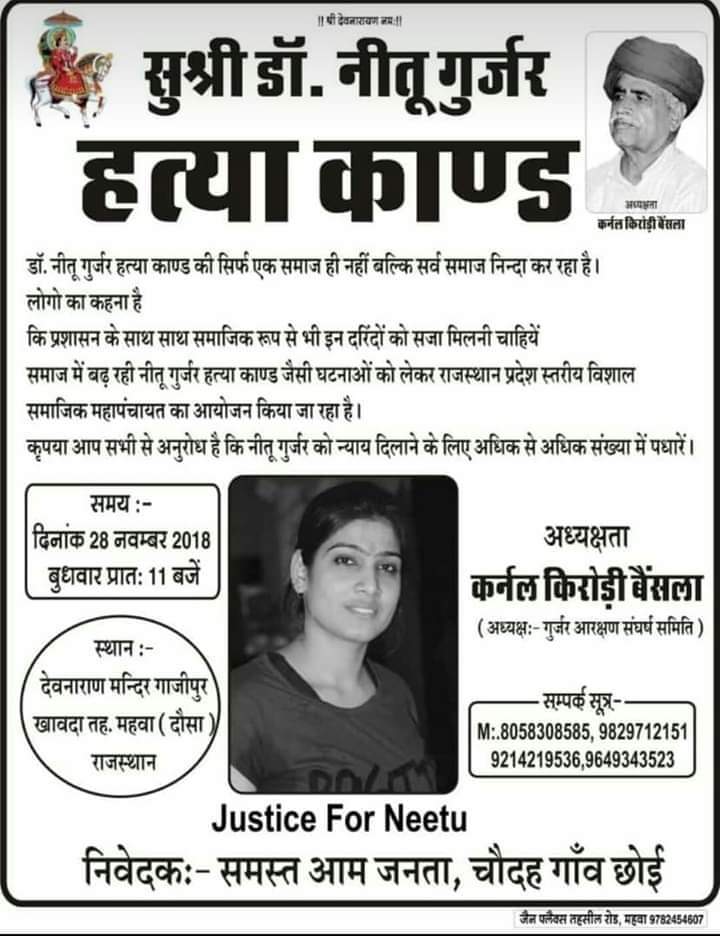 !! श्री देवनारायण नमः!!
सुश्री डॉ. नीतू गुर्जर
हत्या काण्ड
अध्यक्षता
कर्नल किरोड़ी बैंसला
डॉ. नीतू गुर्जर हत्या काण्ड की सिर्फ एक समाज ही नहीं बल्कि सर्व समाज निन्दा कर रहा है।
लोगो का कहना है
कि प्रशासन के साथ साथ समाजिक रूप से भी इन दरिंदों को सजा मिलनी चाहियें
समाज में बढ़ रही नीतू गुर्जर हत्या काण्ड जैसी घटनाओं को लेकर राजस्थान प्रदेश स्तरीय विशाल
समाजिक महापंचायत का आयोजन किया जा रहा है।
कृपया आप सभी से अनुरोध है कि नीतू गुर्जर को न्याय दिलाने के लिए अधिक से अधिक संख्या में पधारें।
समय :-
दिनांक 28 नवम्बर 2018
बुधवार प्रात: 11 बजें
स्थान :-
देवनाराण मन्दिर गाजीपुर
खावदा तह. महवा ( दौसा )
राजस्थान
अध्यक्षता
कर्नल किरोड़ी बैंसला
( अध्यक्ष:- गुर्जर आरक्षण संघर्ष समिति )
सम्पर्क सूत्र-
M:.8058308585, 9829712151
9214219536,9649343523
Justice For Neetu
निवेदकः- समस्त आम जनता, चौदह गाँव छोई
जैन फ्लैक्स तहसील रोड, महवा 9782454607